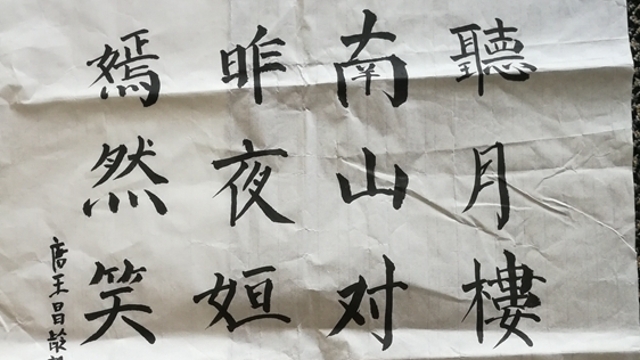 聽月樓
南山对
昨夜姮
嫣然笑
唐王昌齡